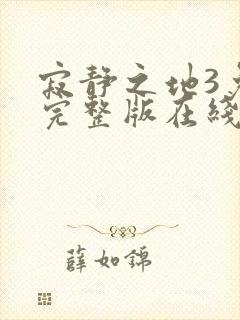 寂静之地3
完整版在线
薛如锦